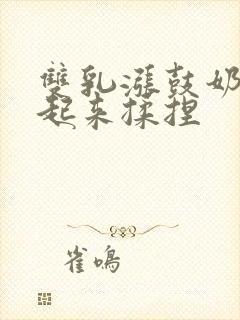 雙乳漲鼓奶
起来揉捏
雀鳴